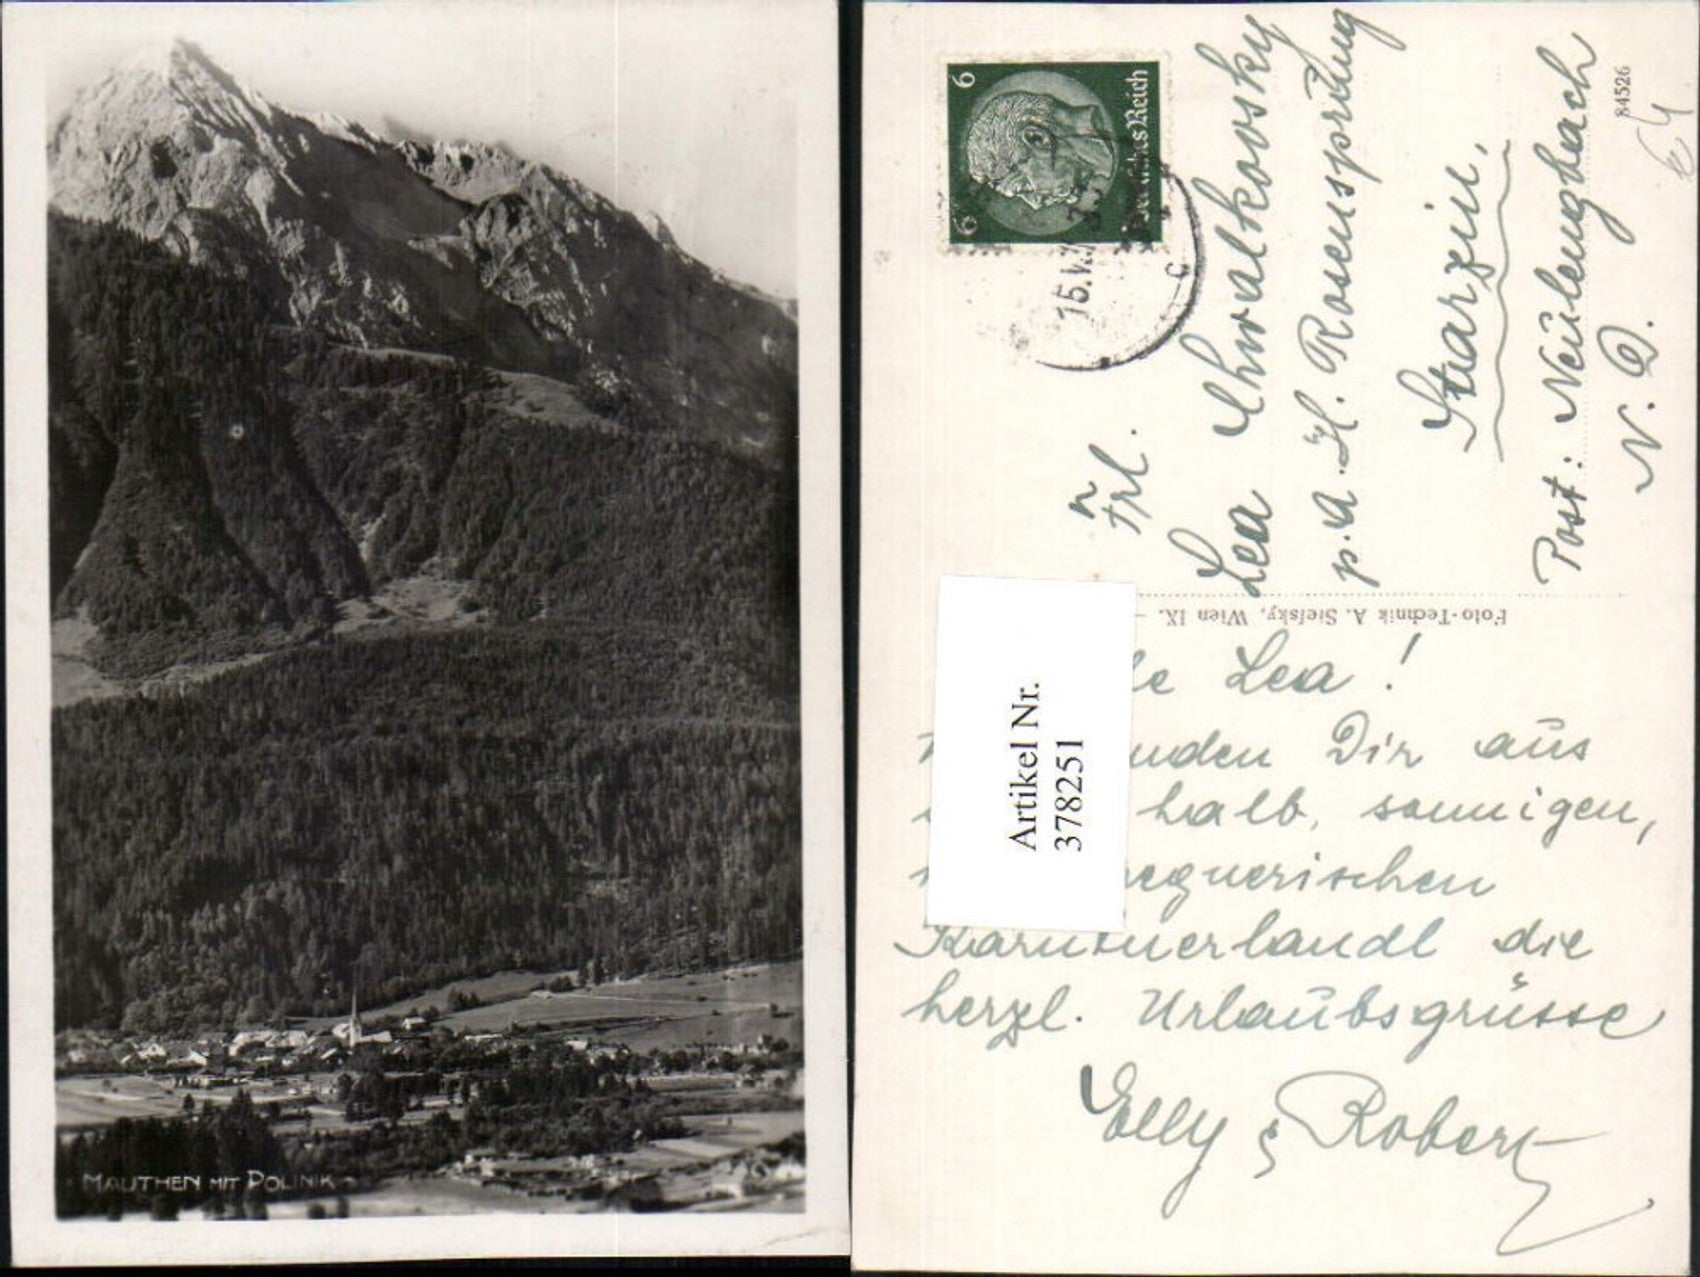 MAUTHEN MIT POLINIK
6
6
Deutsches Reich
15.V
C
Frl.
Lea Chwalkowsky
p. A. H. Rosensprung
Starzin,
Post: Neulengbach
N. D.
84526
Foto-Technik A. Stefsky, Wien IX.
Artikel Nr.
378251
Lea!
Dir aus
halb, sonnigen,
Kärntnerlandl die
herzl. Urlaubsgrüsse
Elly & Robert